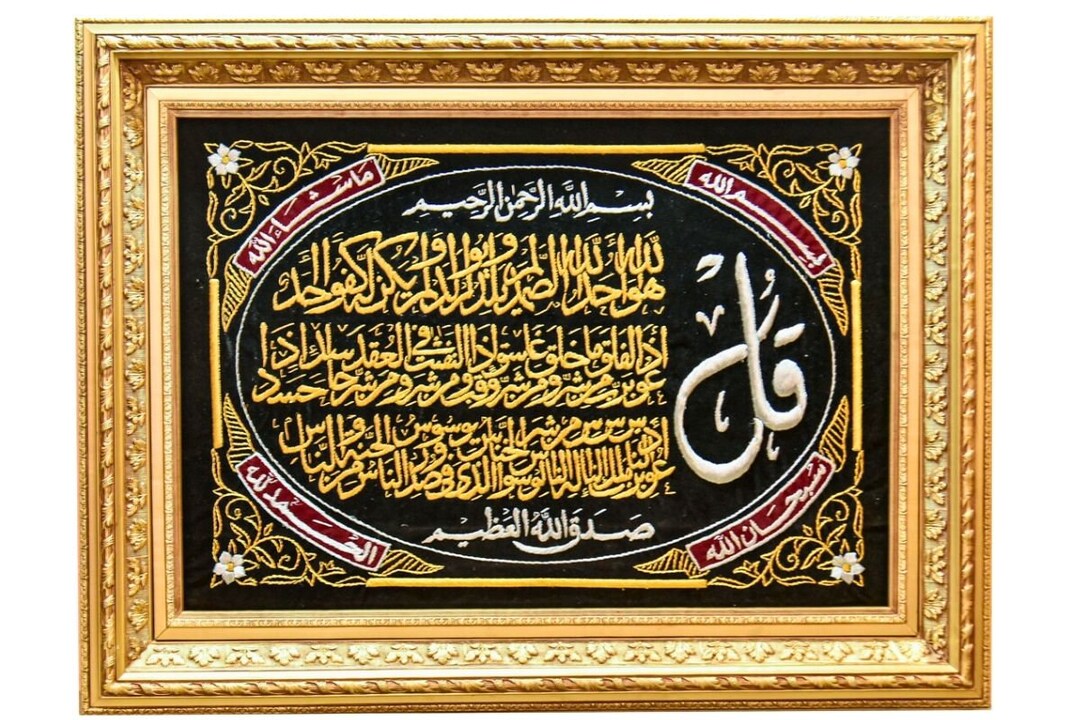 بسم الله
ماشاء الله
بسم الله الرحمن الرحيم
قل
هو الله احد الله الصمد لم يلد ولم يولد ولم يكن له كفوا احد
اعوذ برب الفلق من شر ما خلق ومن شر غاسق اذا وقب ومن شر النفثت في العقد ومن شر حاسد اذا حسد
اعوذ برب الناس ملك الناس اله الناس من شر الوسواس الخناس الذي يوسوس في صدور الناس من الجنة والناس
صدق الله العظيم
سبحان الله
الحمد لله